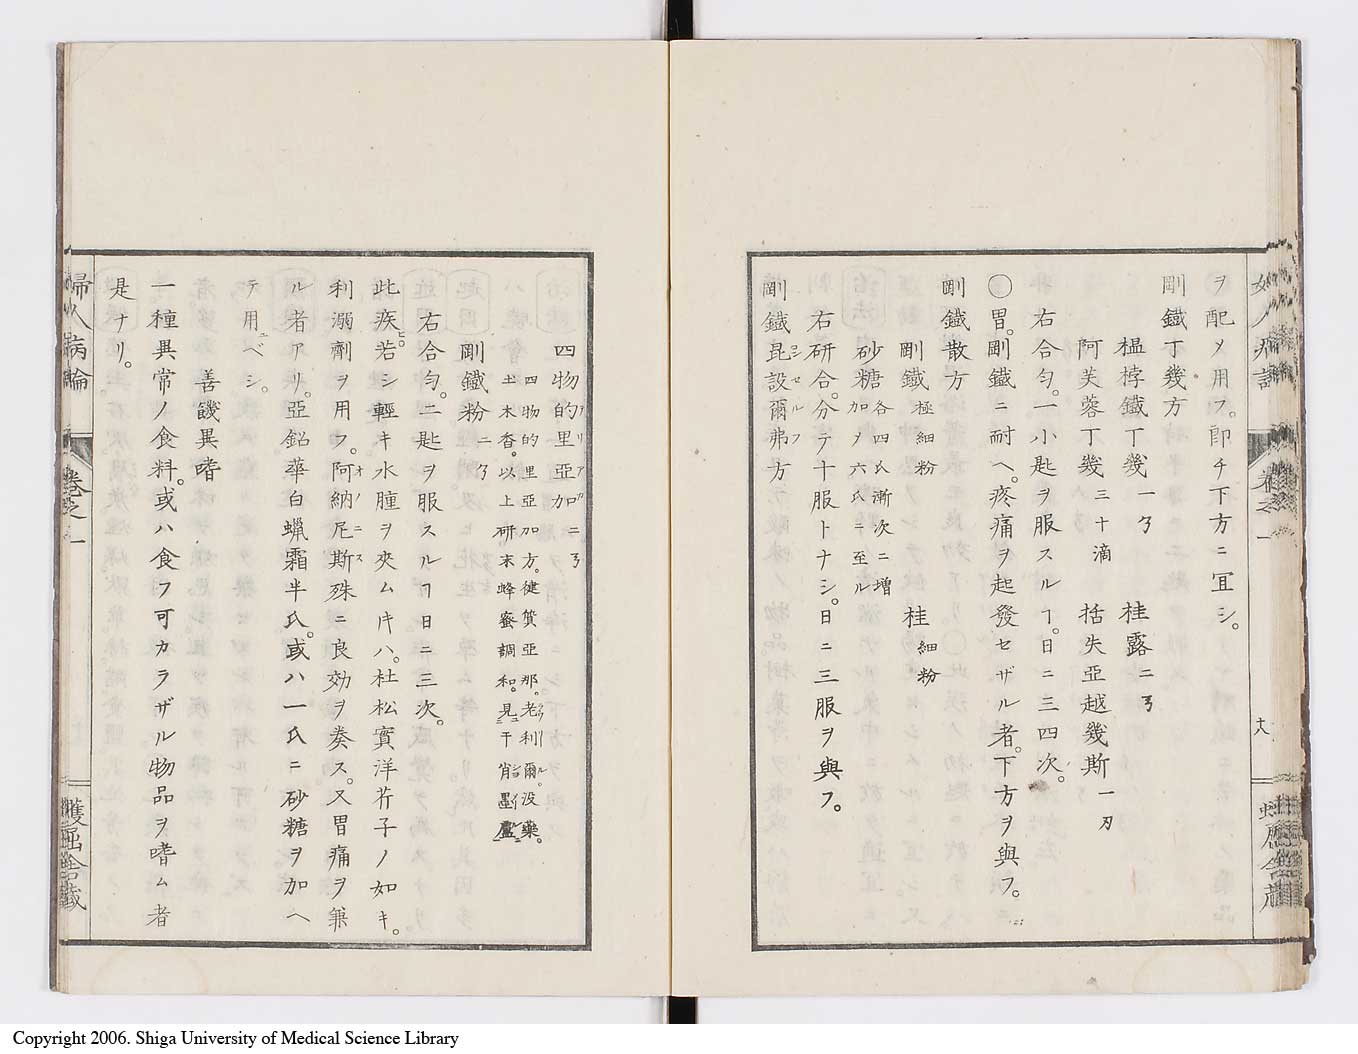 ヲ配メ用フ。卽チ下方ニ宜シ。
剛鐵丁幾方
榲桲鐵丁幾 一ゟ 桂露 二ゟ
阿芙蓉丁幾 三十滴 括失亞越幾斯 一刃
右合匀。一小匙ヲ服スルヿ。日ニ三四次。
〇胃。剛鐵ニ耐ヘ。疼痛ヲ起發セザル者。下方ヲ與フ。
剛鐵散方
剛鐵 極細粉 桂 細粉
砂糖 各四氏漸次ニ増加ノ六氏ニ至ル
右研合。分テ十服トナシ。日ニ三服ヲ與フ。
剛鐵昆設爾弗方
コンセルフ
十八
四物的里亞加 二ゟ
テリアカ
四物的里亞加方。健質亞那。老利爾。没藥。
土木香。以上研末蜂蜜調和。見于肖墨盧
剛鐵粉 二ゟ
右合匀。二匙ヲ服スルヿ日ニ三次。
此疾若シ輕キ水腫ヲ夾ムキハ。杜松實洋芥子ノ如キ。
利溺劑ヲ用フ。阿納尼斯殊ニ良効ヲ奏ス。又胃痛ヲ兼
オノニス
ル者アリ。亞鉛華白蝋霜半氏。或ハ一氏ニ砂糖ヲ加ヘ
テ用ベシ。
善饑異嗜
一種異常ノ食料。或ハ食フ可カラザル物品ヲ嗜ム者
是ナリ。
婦人病論
卷之一
Copyright 2006. Shiga University of Medical Science Library